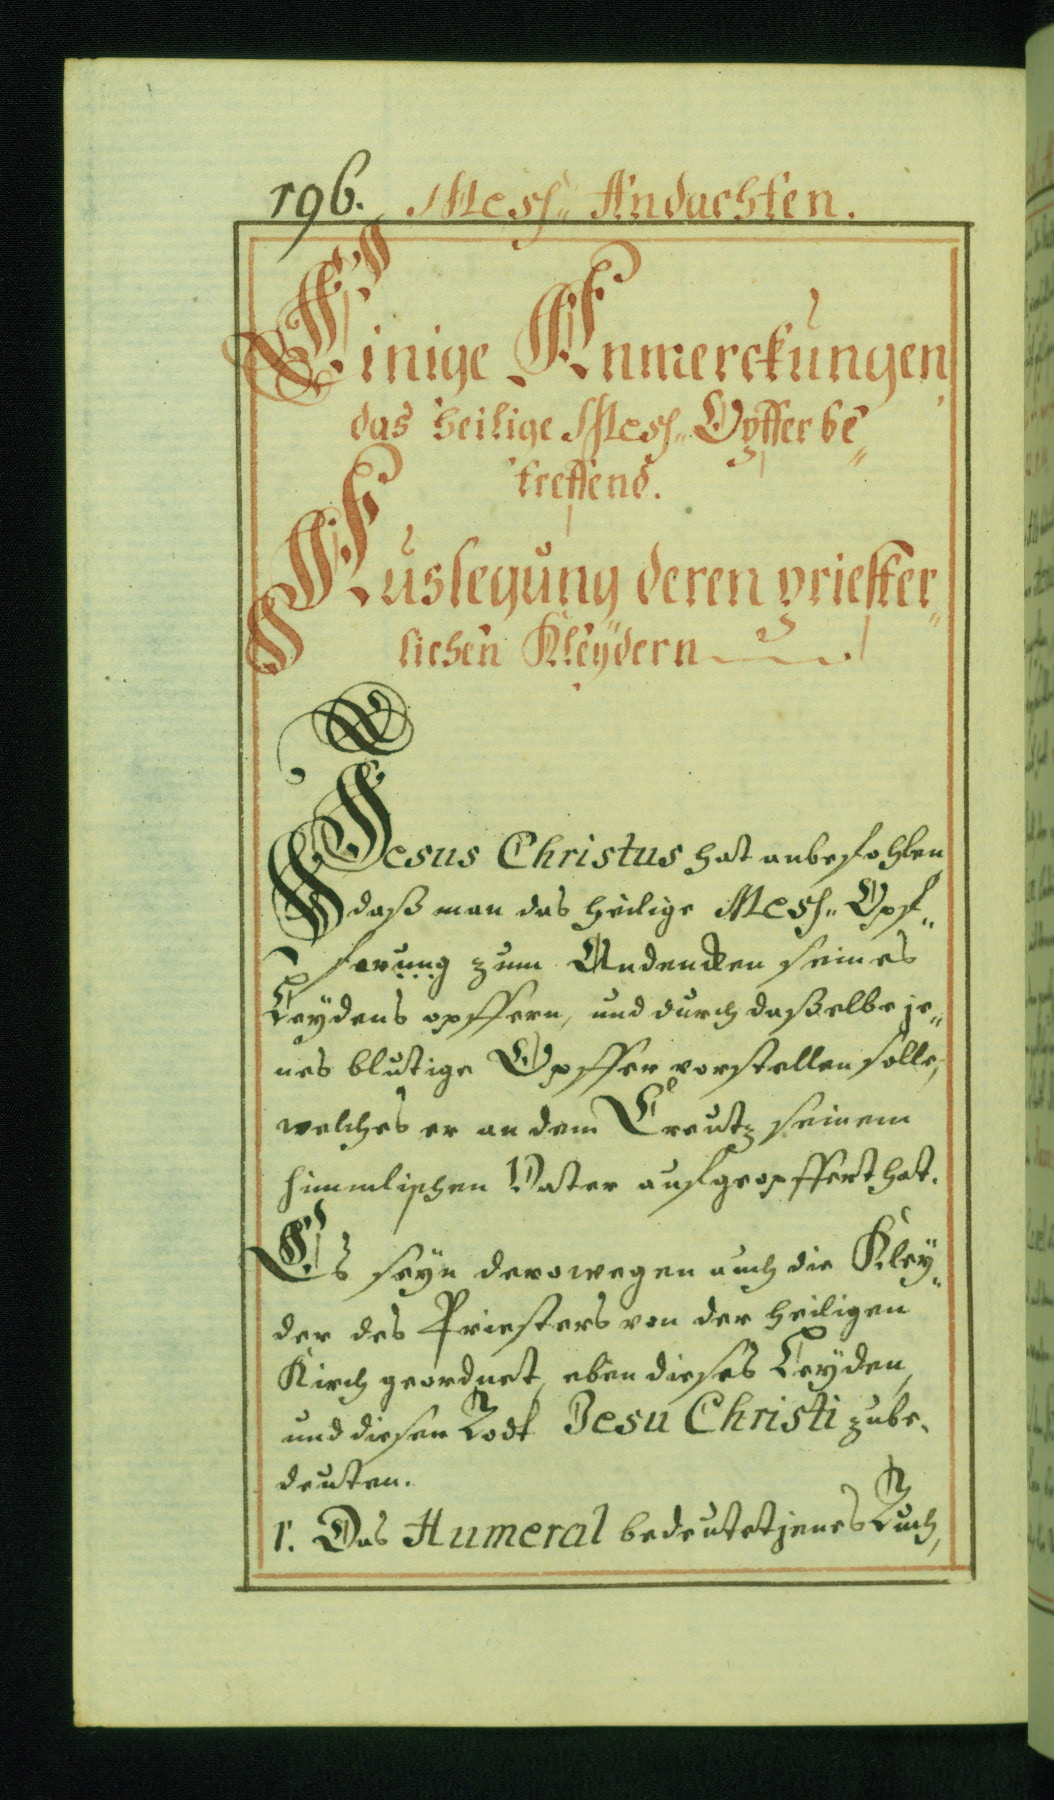 196. Mess„ Andachten.
Einige Anmerckungen
das heilige Mess„ Opffer be„
treffend.
Auslegung deren priester„
lichen Kleÿdern
Jesus Christus hat anbefohlen
daß man das heilige Mess„ Opf„
ferung zum Andencken seines
Leÿdens opffern, und durch daßelbe je„
nes blutige Opffer vorstellen solle,
welches er an dem Creutz seinem
himmlischen Vater aufgeopffert hat.
Es seÿn derowegen auch die Kleÿ„
der des Priesters von der heiligen
Kirch geordnet, eben dieses Leÿden,
und diesen Todt Jesu Christi zube„
deuten.
1. Das Humeral bedeutet jenes Tuch,